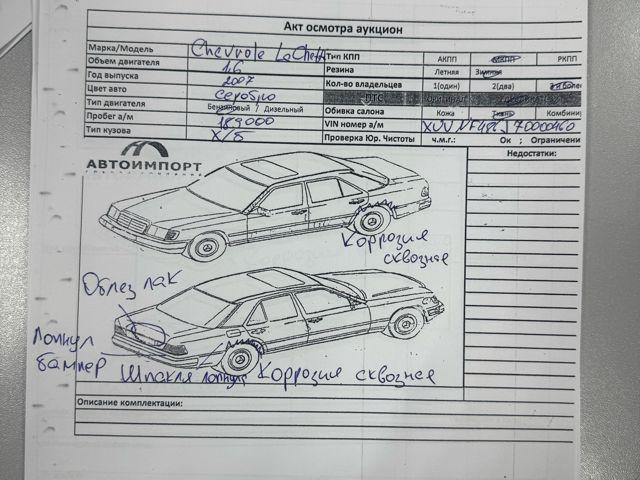 Акт осмотра аукцион
Марка/Модель Chevrole
Тип КПП АКПП МКПП РКПП
Объем двигателя 1.6
Резина Летняя Зимняя
Год выпуска 2007
Кол-во владельцев 1(один) 2(два)
Цвет авто Серебро
ПТС
Тип двигателя Бензиновый / Дизельный
Обивка салона Кожа Ткань Комбини
Пробег а/м 189000
VIN номер а/м
Тип кузова Х/б
Проверка Юр. Чистоты ч.м.г.: Ок ; Ограничени
АВТОИМПОРТ
Недостатки:
Коррозия
сквозная
Облез лак
Лопнул
бампер
Шпакля лопнула
Коррозия сквозная
Описание комплектации: